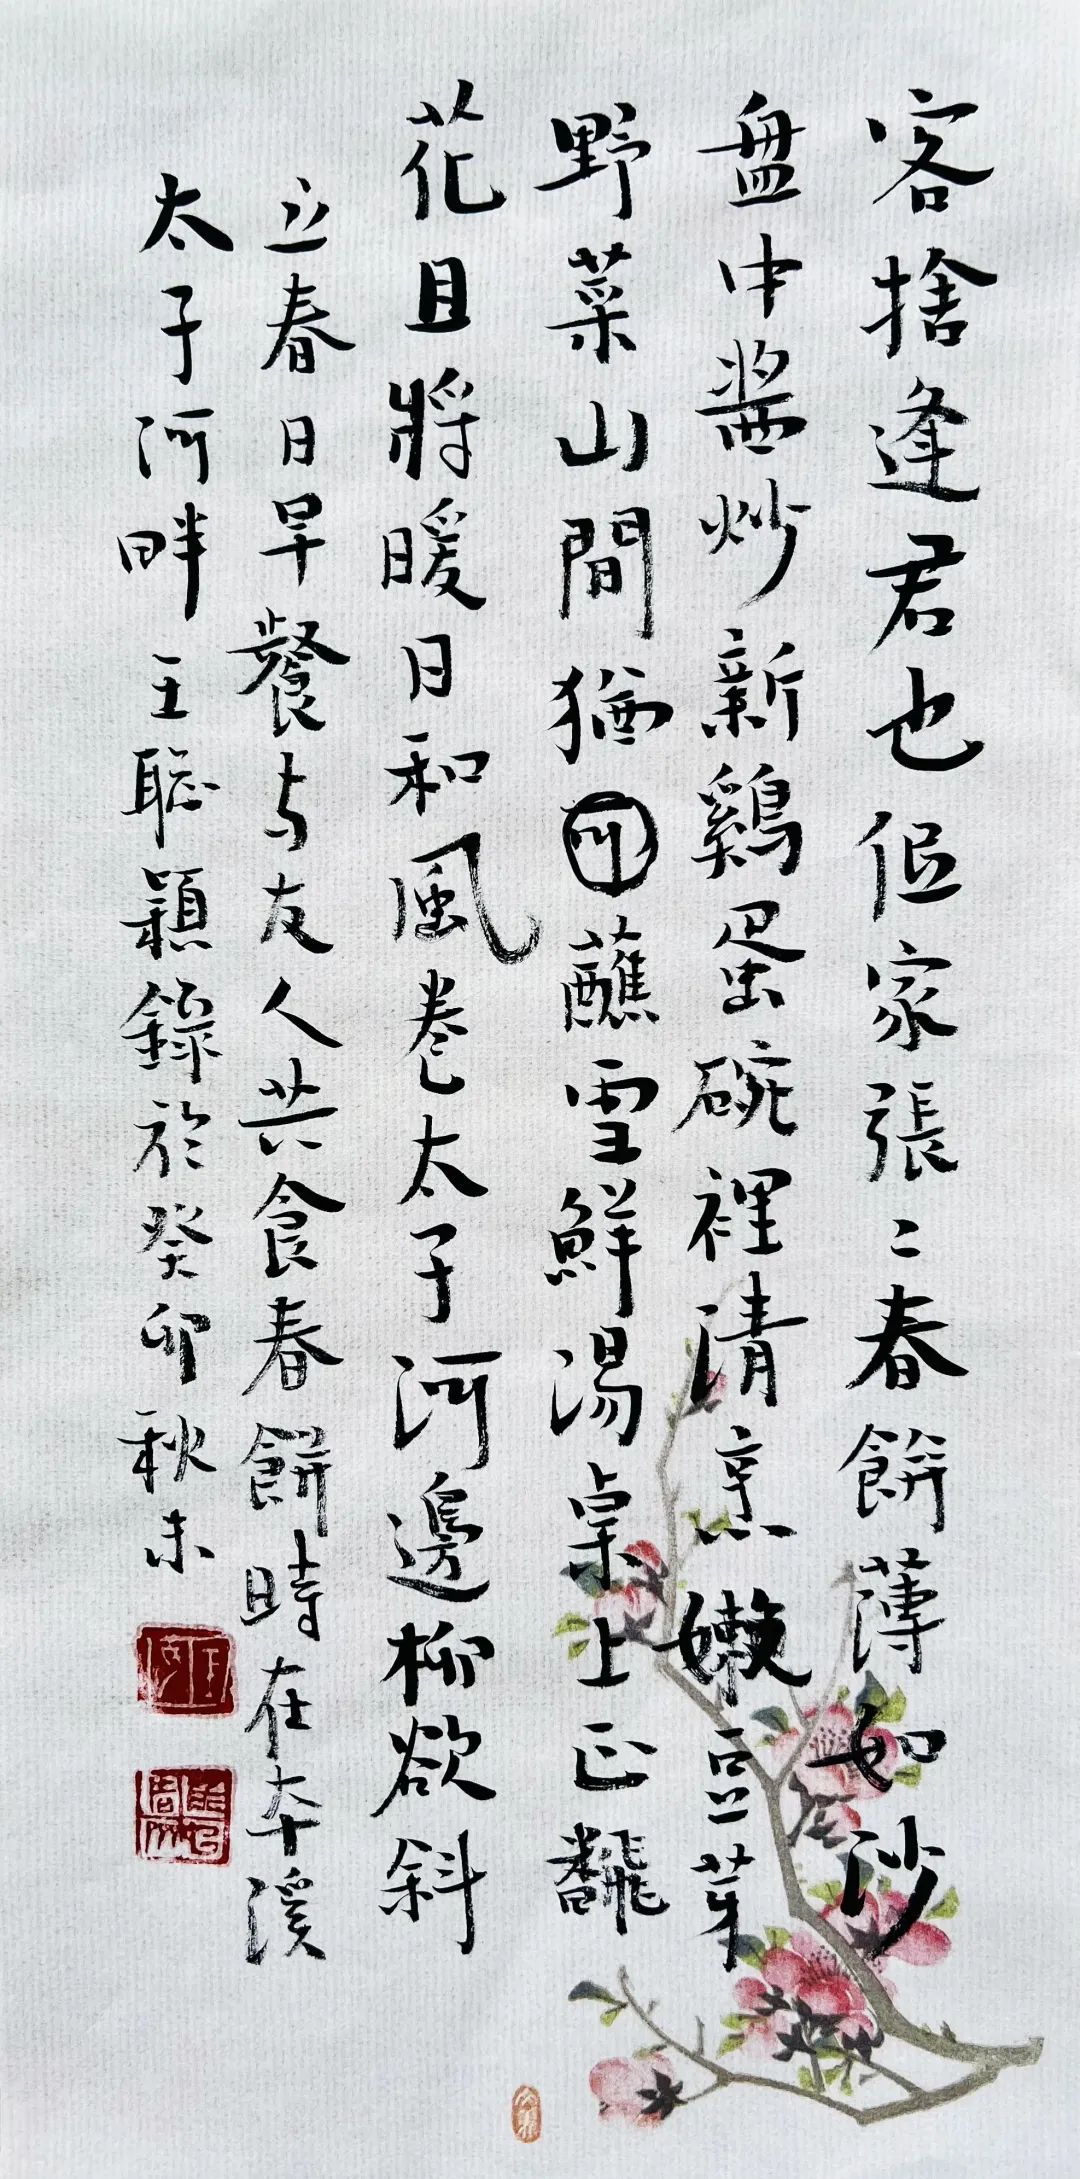 客捨逢君也佀家張〻春餅薄如沙
盘中醬炒新鷄蛋碗裡清烹嫩豆芽
野菜山間猶蘸雪鮮湯桌上正飜
花且將暖日和風卷太子河邊柳欲斜
立春日早餐与友人共食春餅時在本溪
太子河畔王聡穎錄於癸卯秋末